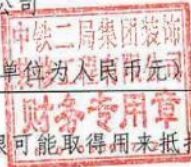 公司
中铁二局集团装饰
单位为人民币元）
财务专用章
很可能取得用来抵